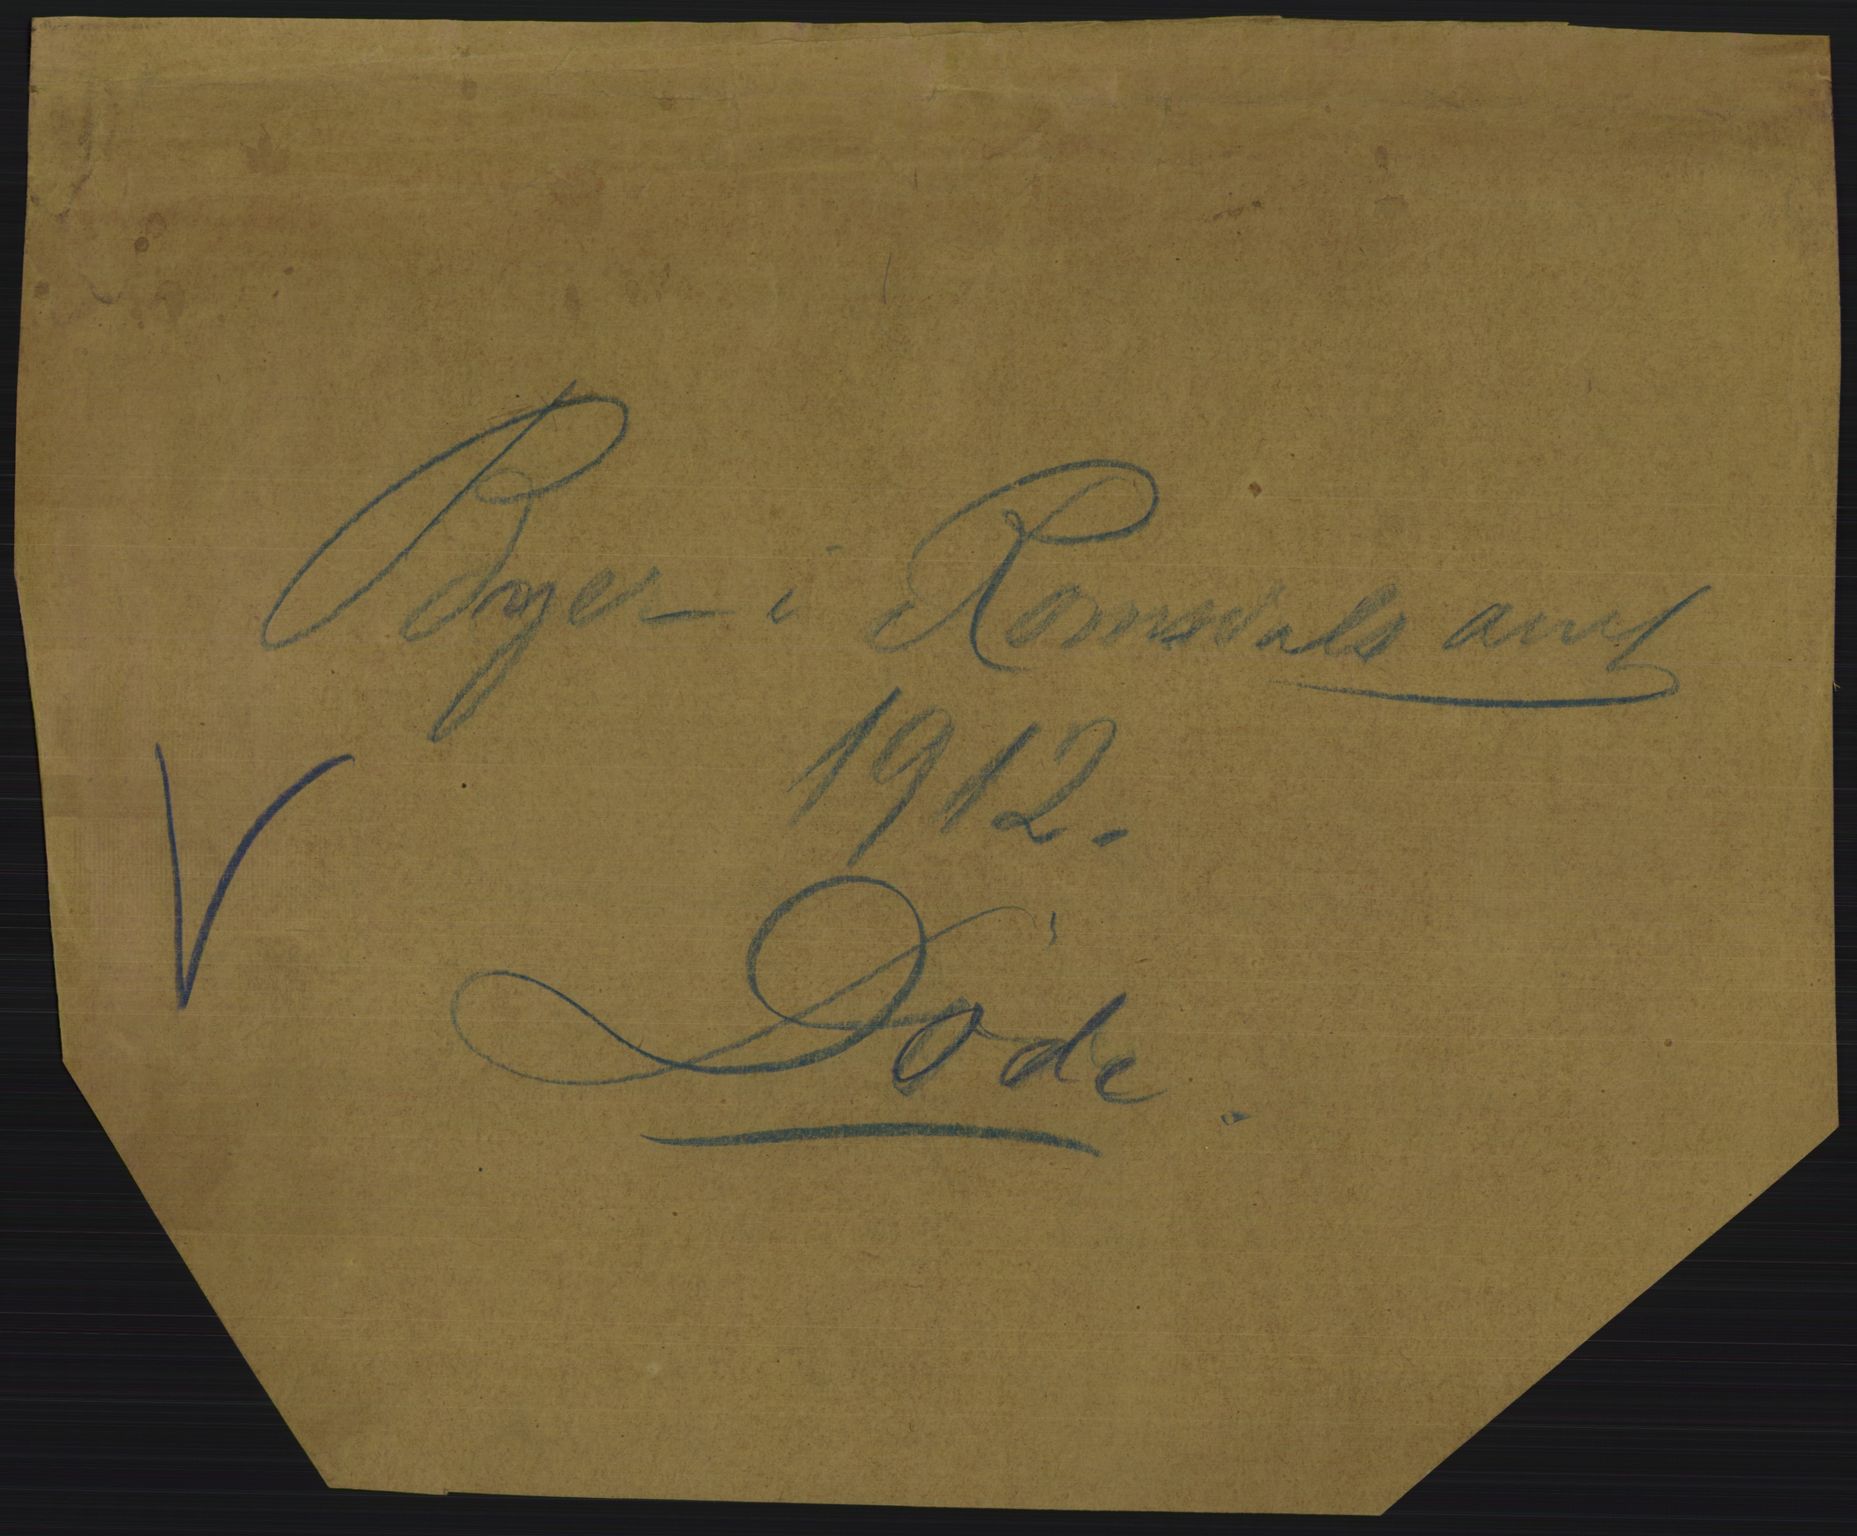 Byer i Romsdals amt
1912.
Døde.